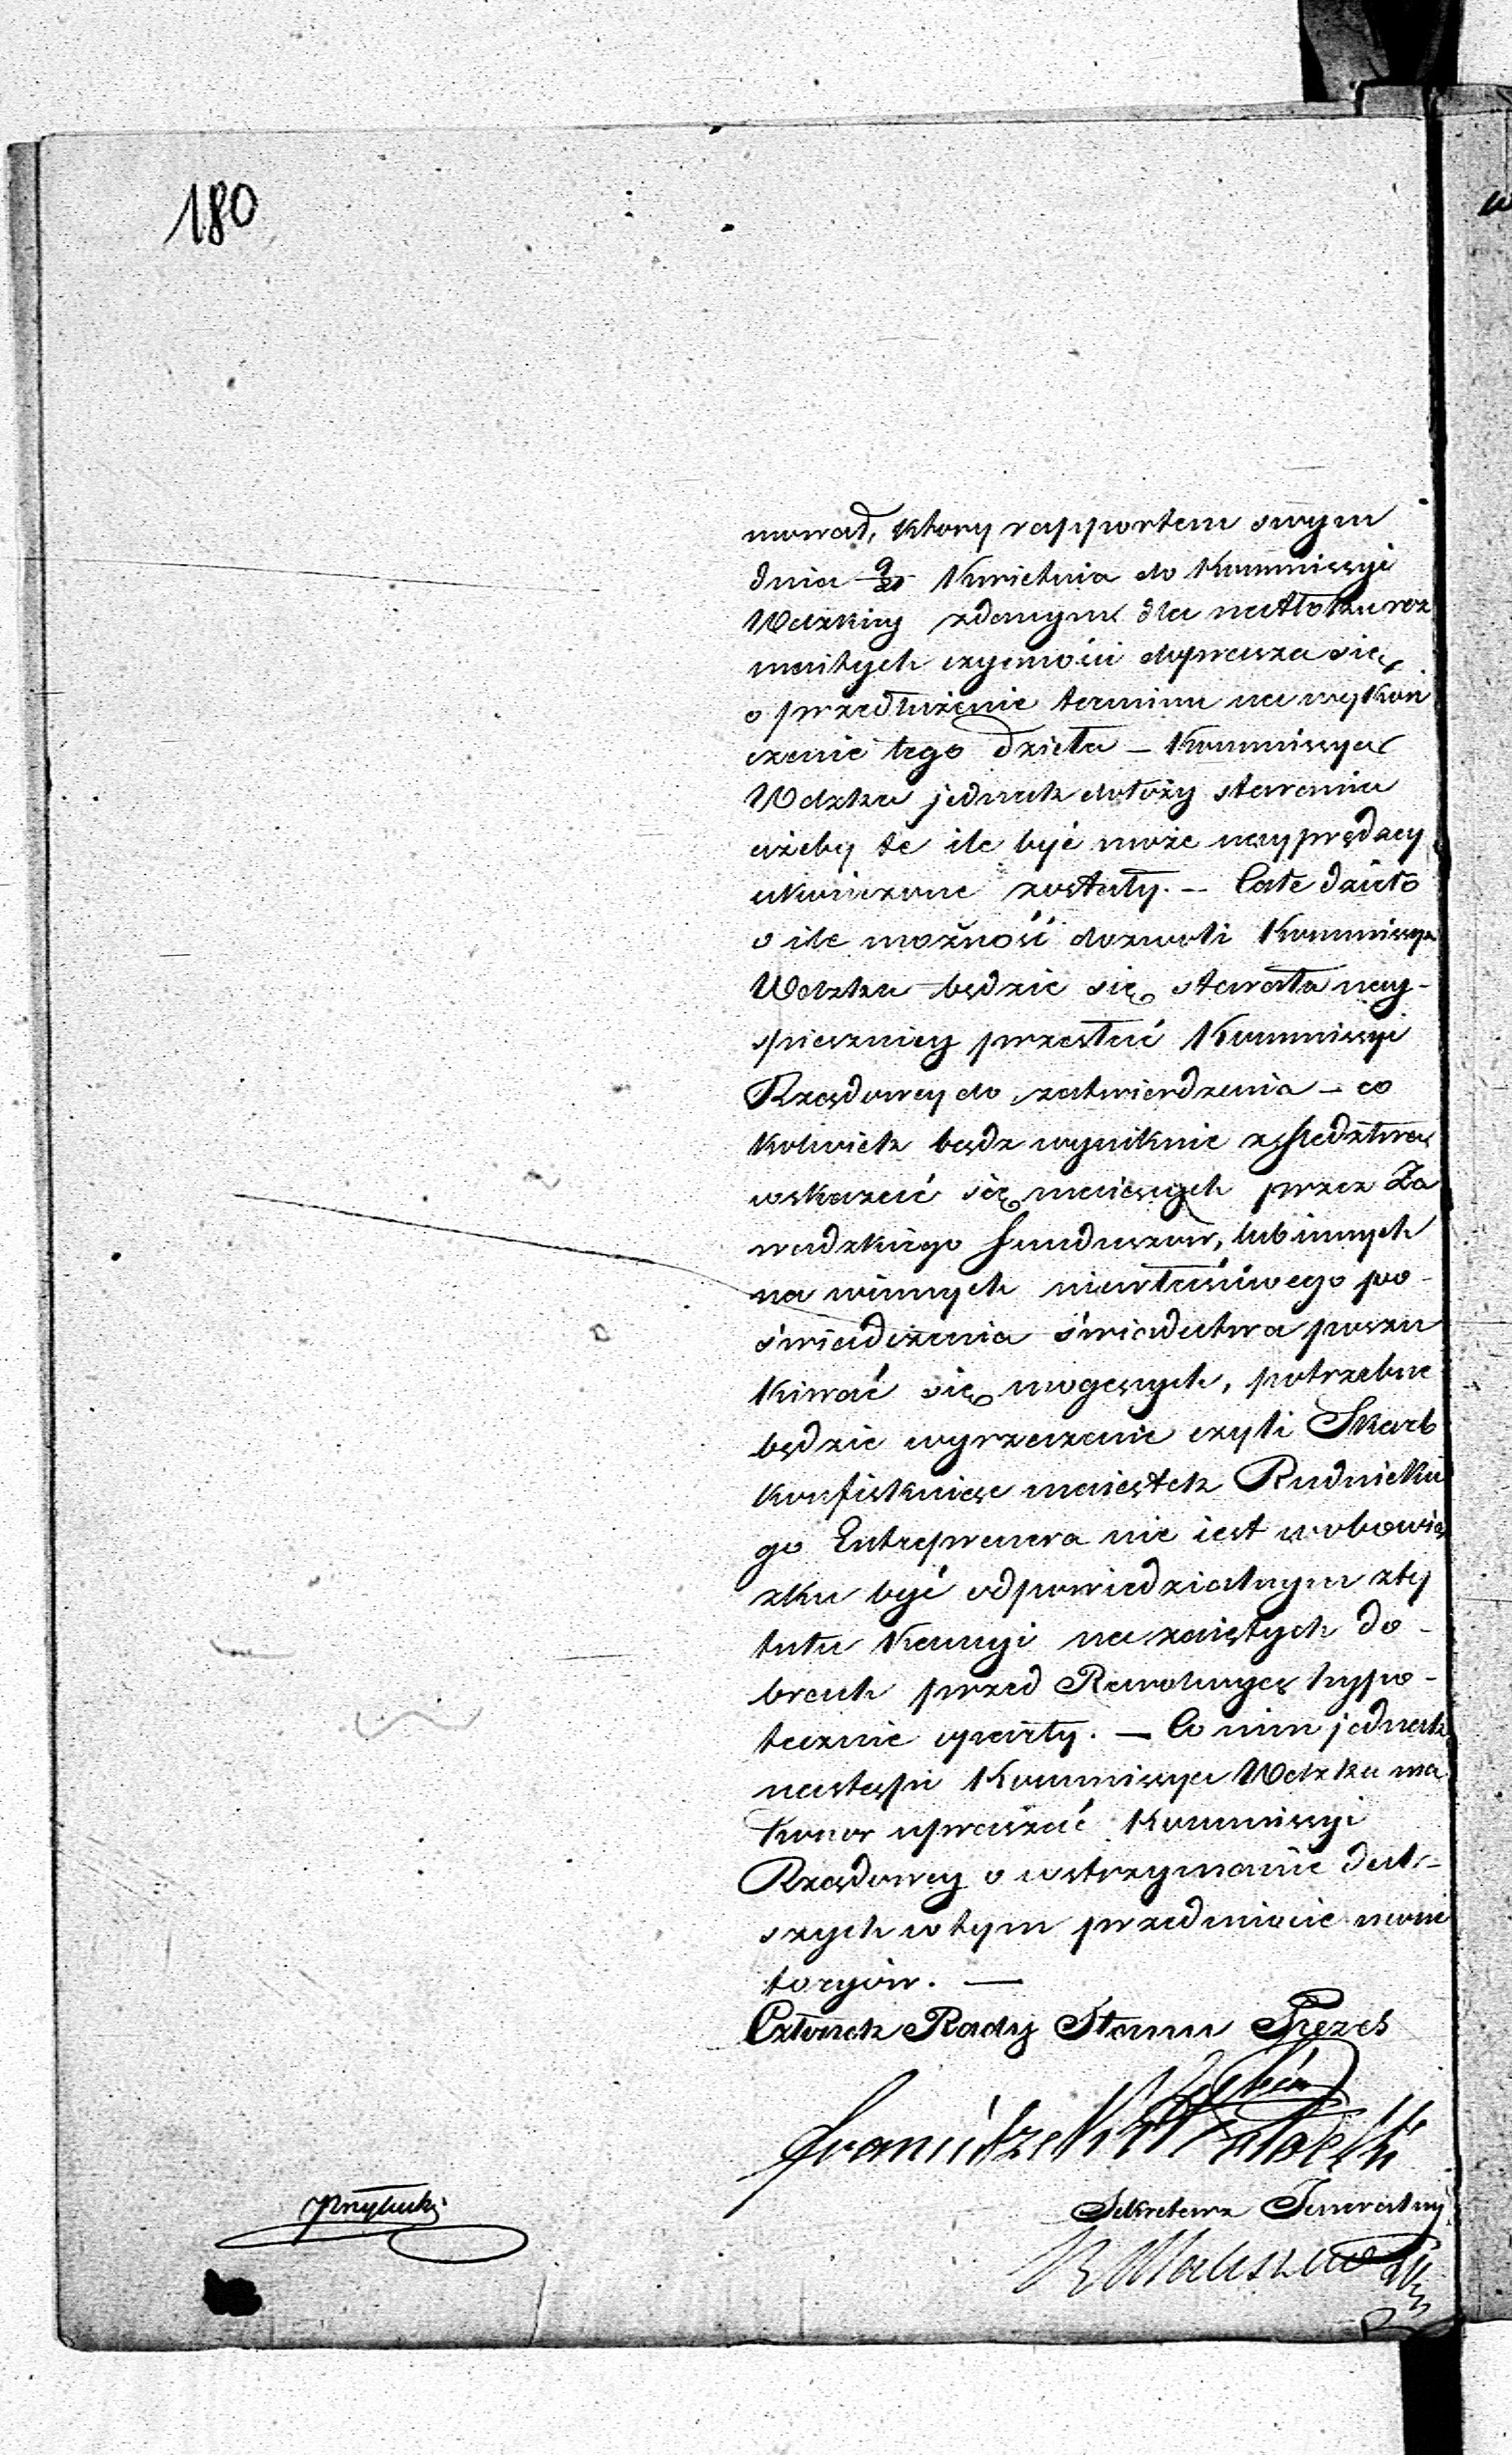 180
mował, ktory rapportem swym
dnia 9/21 Kwietnia do Kommissyi
Wdzkiey zdanym dla natłoku roz
maitych czynności doprasza się
o przedłużenie terminu na wykoń
czenie tego dzieła — Kommissya
Wdzka jednak dołoży starania
ażeby te ile być może nayprędzey
ukończone zostały. — Całe dzieło
o ile możność dozwoli Kommissya
Wdzka będzie się starała nay-
spieszniey przesłać Kommissyi
Rządowey do zatwierdzenia — co
kolwiek bądz wyniknie z śledztwa
wskazać się maiących przez Za
wadzkiego funduszów, lub innych
na winnych niewłaściwego po-
świadczenia świadectwa poszu
kiwać się mogących, potrzebne
będzie wyrzeczenie czyli Skarb
konfiskuiąc maiątek Rudnickie
go Entreprenera nie iest w obowią
zku być odpowiedzialnym z ty
tułu Kaucyi na zaiętych do-
brach przed Rewolucyą hypo-
tecznie opartey. — Co nim jednak
nastąpi Kommissya Wdzka ma
honor upraszać Kommissyi
Rządowey o wstrzymanie dal-
szych w tym przedmiocie moni
toryów. —
Członek Rady Stanu Prezes
Franciszek
Sekretarz Jeneralny